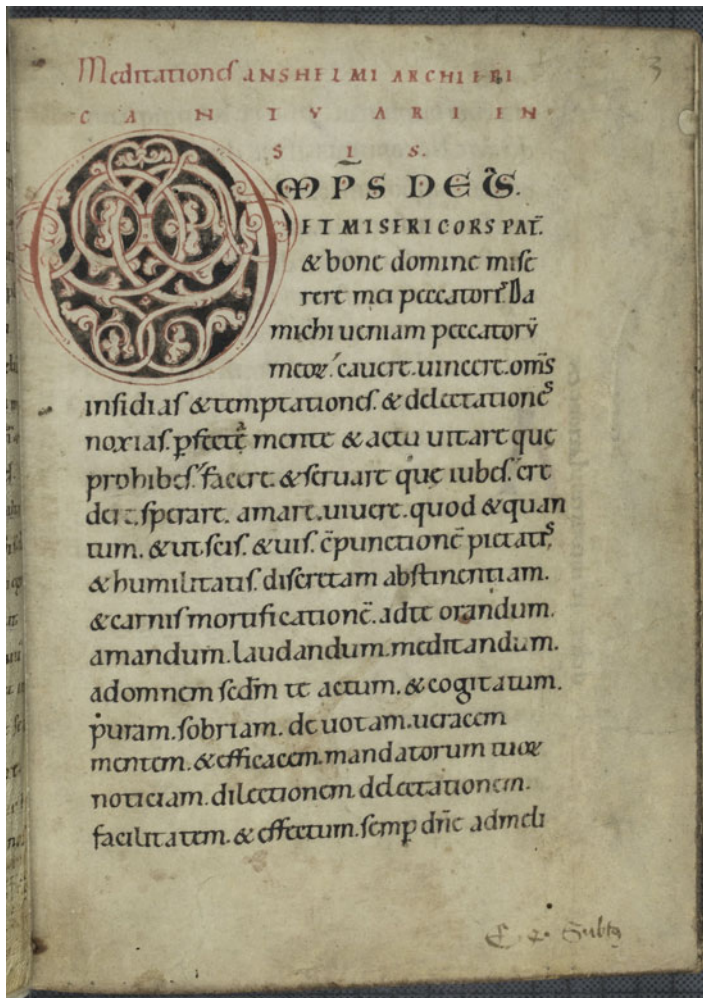 Meditationes ANSHELMI ARCHIEPI
CANTVARIEN
SIS.
3
OMP̄S DEUS.
ET MISERICORS PAT̄.
& bone domine mise
rere mei peccatori᷒ Da
michi ueniam peccatorū
meoꝝ. cauere. uincere. om̄s
insidias & temptationes. & delectatione᷒
noxias. ꝑfecte mente & actu uitare quę
prohibes. facere. & seruare quę iubes. cre
dere. sperare. amare. uiuere. quod & quan
tum. & ut scis. & uis. c̄punctionē pietati᷒
& humilitatis. discretam abstinentiam.
& carnis mortificationē. ad te orandum.
amandum. laudandum. meditandum.
ad omnem scdm̄ te actum. & cogitatum.
puram. sobriam. deuotam. ueracem
mentem. & efficacem. mandatorum tuoꝝ
noticiam. dilectionem. delectationem.
facilitatem. & effectum. semꝑ dn̄e ad meli